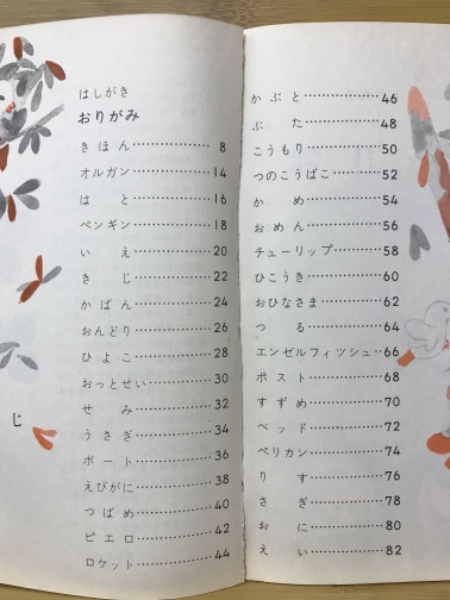 はしがき
おりがみ
きほん………………8
オルガン……………14
はと………………16
ペンギン……………18
いえ………………20
きじ………………22
かばん………………24
おんどり……………26
ひよこ………………28
おっとせい…………30
せみ………………32
うさぎ………………34
ボート………………36
えびがに……………38
つばめ………………40
ピエロ………………42
ロケット……………44
じ
かぶと………………46
ぶた………………48
こうもり……………50
つのこうばこ………52
かめ………………54
おめん………………56
チューリップ………58
ひこうき……………60
おひなさま…………62
つる………………64
エンゼルフィッシュ…66
ポスト………………68
すずめ………………70
ベッド………………72
ペリカン……………74
りす………………76
さぎ………………78
おに………………80
えい………………82